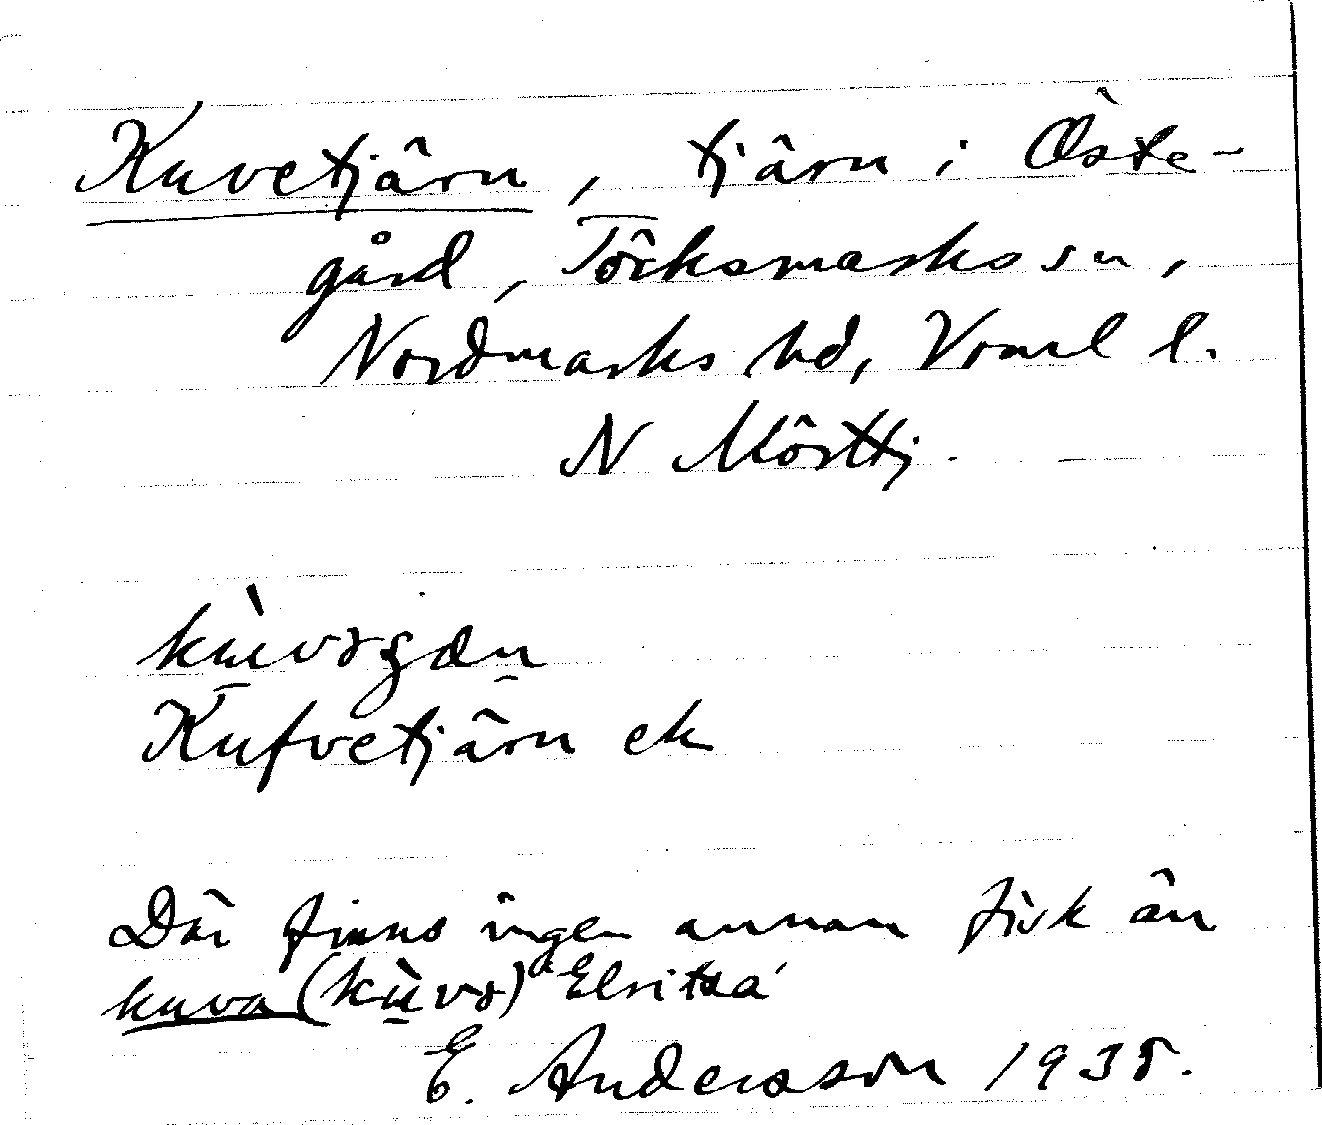 Kuvetjärn, tjärn i Öste-
gård, Töcksmarks sn,
Nordmarks hd, Vrml l.
N Mörttj.
kùvəʂæn
Kufvetjärn ek
Där finns ingen annan fisk än
kuva (kùvə) 'Elritsa'
E. Andersson 1935.